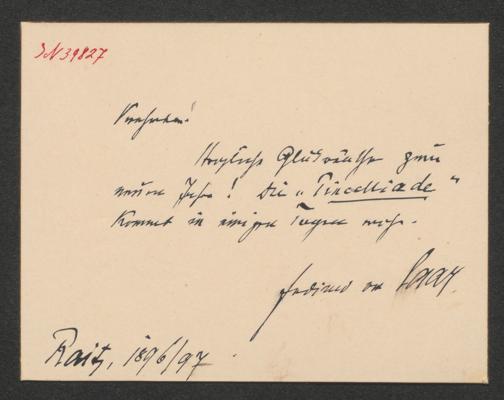 JN 39827
Verehrter!
Herzliche Glückwünsche zum
neuen Jahr! Die „Pincelliade“
kommt in einigen Tagen nach.
Ferdinand von Saar.
Raitz, 1896/97.